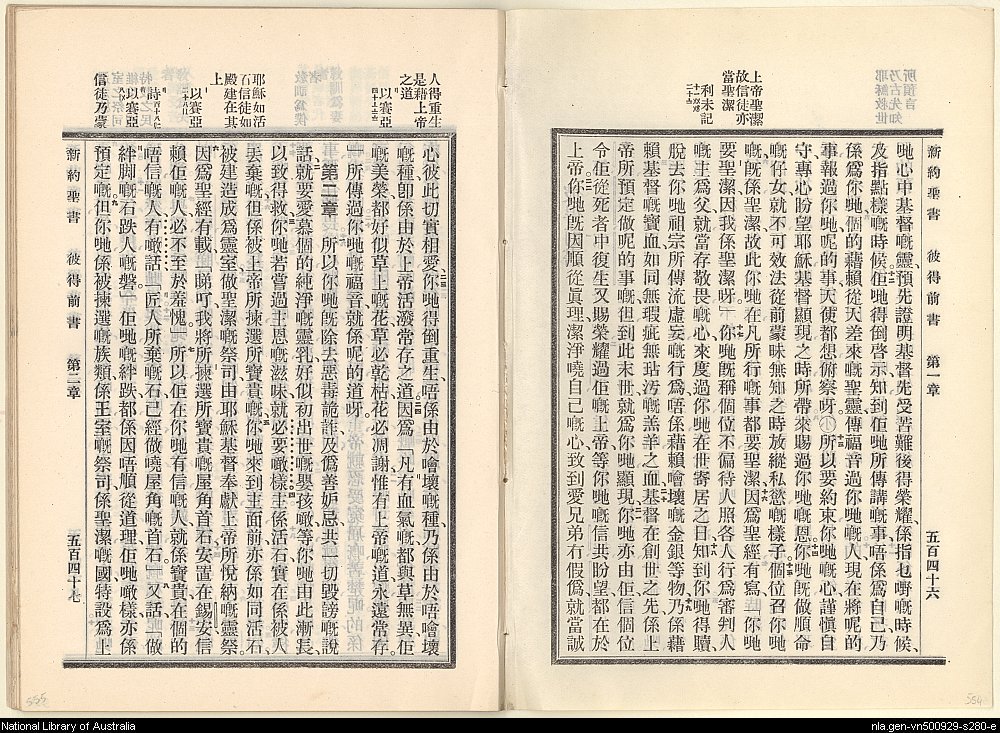 所預言
乃古先知
耶穌救世
上帝聖潔
故信徒亦
當聖潔
利未記
新約聖書 彼得前書 第一章 五百四十六
哋心中基督嘅靈預先證明基督先受苦難後得榮耀係指乜嘢嘅時候
及指點樣嘅時候佢哋得倒啓示知到佢哋所傳講嘅事唔係爲自己乃
係爲你哋個的藉賴從天差來嘅聖靈傳福音過你哋嘅人現在將呢的
事報過你哋呢的事天使都想俯察呀所以要約束你哋嘅心謹愼自
守專心盼望耶穌基督顯現之時所帶來賜過你哋嘅恩你哋旣做順命
嘅仔女就不可效法從前蒙昧無知之時放縱私慾嘅樣子個位召你哋
嘅旣係聖潔故此你哋在凡所行嘅事都要聖潔因爲聖經有寫「你哋
要聖潔因我係聖潔呀」你哋旣稱個位不偏待人照各人行爲審判人
嘅主爲父就當存敬畏嘅心來度過你哋在世寄居之日知到你哋得贖
脫去你哋祖宗所傳流虛妄嘅行爲唔係藉賴噲壞嘅金銀等物乃係藉
賴基督嘅寶血如同無瑕疵無玷污嘅羔羊之血基督在創世之先係上
帝所預定做呢的事嘅但到此末世就爲你哋顯現你哋亦由佢信個位
令佢從死者中復生又賜榮耀過佢嘅上帝等你哋嘅信共盼望都在於
上帝你哋旣因順從眞理潔淨曉自己嘅心致到愛兄弟有假僞就當誠
人得重生
是藉上帝
之道
以賽亞
耶穌如活
石信徒如
殿建在其
上
以賽亞
詩
以賽亞
特선之民
信徒乃蒙
心彼此切實相愛你哋得倒重生唔係由於噲壞嘅種乃係由於唔噲壞
嘅種卽係由於上帝活潑常存之道因爲「凡有血氣嘅都與草無異佢
嘅美榮都好似草上嘅花草必乾枯花必凋謝惟有上帝嘅道永遠常存
」所傳過你哋嘅福音就係呢的道呀
第二章 所以你哋旣除去惡毒詭詐及僞善妒忌共一切毀謗嘅說
話就要愛慕個的純淨嘅靈乳好似初出世嘅嬰孩噉等你哋由此漸長
以致得救你哋若嘗過主恩嘅滋味就必要噉樣主係活石實在係被人
丟棄嘅但係被上帝所揀選所寶貴嘅你哋來到主面前亦係如同活石
被建造成爲靈室做聖潔嘅祭司由耶穌基督奉獻上帝所悅納嘅靈祭
因爲聖經有載「睇吓我將所揀選所寶貴嘅屋角首石安置在錫安信
賴佢嘅人必不至於羞愧」所以佢在你哋有信嘅人就係寶貴在個的
唔信嘅人有噉話「匠人所棄嘅石已經做曉屋角嘅首石」又話「做
絆脚嘅石跌人嘅磐」佢哋嘅絆跌都係因唔順從道理佢哋噉樣亦係
預定嘅但你哋係被揀選嘅族類係王室嘅祭司係聖潔嘅國特設爲上
新約聖書 彼得前書 第二章 五百四十七
555
554
National Library of Australia
nla.gen-vn500929-s280-e